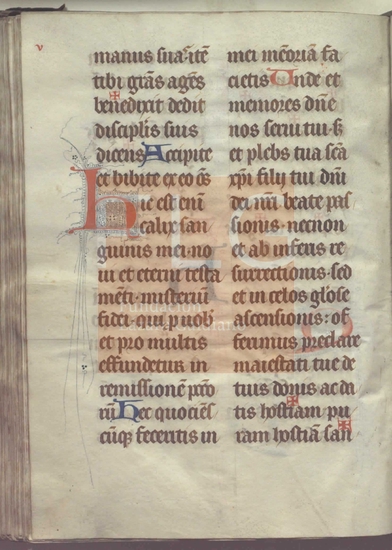 v
manus suas: itē
tibi grās agēs
benedixit dedit
discipulis suis
dicens Accipite
et bibite ex eo oēs
Hic est enī
calix san
guinis mei · no
ui et eterni testa
mēti · misteriū
fidei · qui p uobis
et pro multis
effundetur in
remissionē pctō
rū Hec quociēs
cūq; feceritis in
mei memoriā fa
cietis Unde et
memores dn̄e
nos serui tui · s;
et plebs tua scā
xp̄i filij tui dn̄i
dei nr̄i beate pas
sionis · necnon
et ab inferis re
surrectionis · sed
et in celos glōse
ascensionis : of
ferimus preclare
maiestati tue de
tuis donis ac da
tis hostiam pu
ram hostiā san